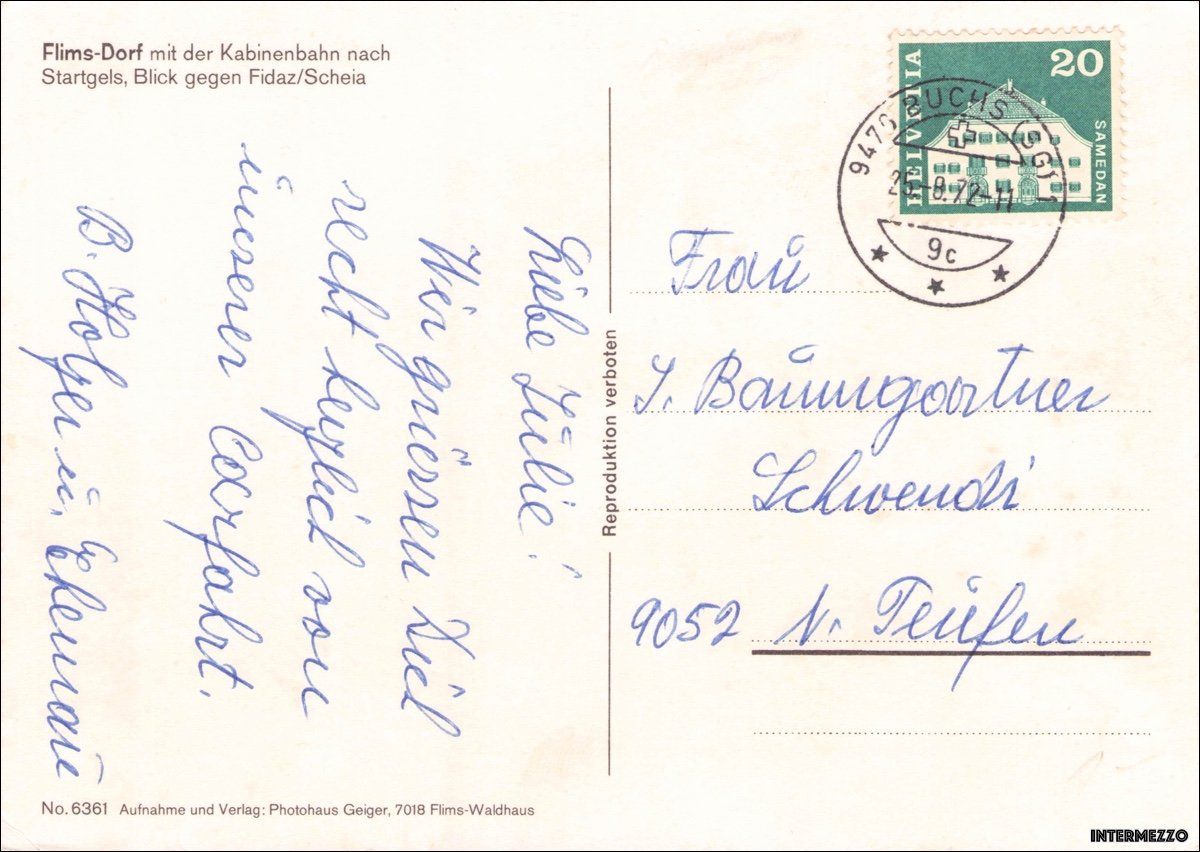 Flims-Dorf mit der Kabinenbahn nach
Startgels, Blick gegen Fidaz/Scheia
Liebe Julie!
Wir grüssen Dich
recht herzlich von
unserer Carfahrt.
B. Holzer u. Ehemann
No. 6361 Aufnahme und Verlag: Photohaus Geiger, 7018 Flims-Waldhaus
Reproduktion verboten
HELVETIA
20
SAMEDAN
9470 BUCHS (SG) 1
25.-8.72-11
9c
Frau
J. Baumgartner
Schwendi
9052 N. Teufen
INTERMEZZO